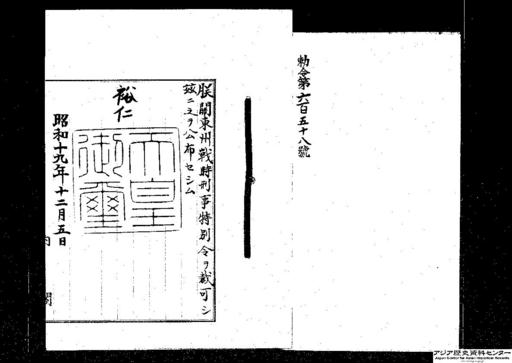 勅令第六百五十八號
朕關東州戰時刑事特別令ヲ裁可シ
玆ニ之ヲ公布セシム
裕仁
天皇
御璽
昭和十九年十二月五日
内閣
アジア歴史資料センター
Japan Center for Asian Historical Records